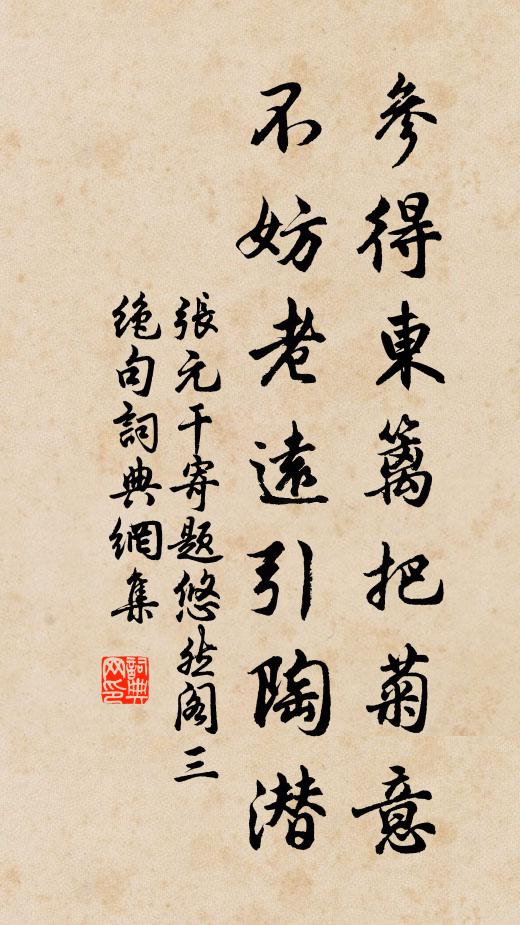 參得東籬把菊意
不妨老遠引陶潛
張元干寄題悠然阁三
絶句詞典網集
詞典
网印